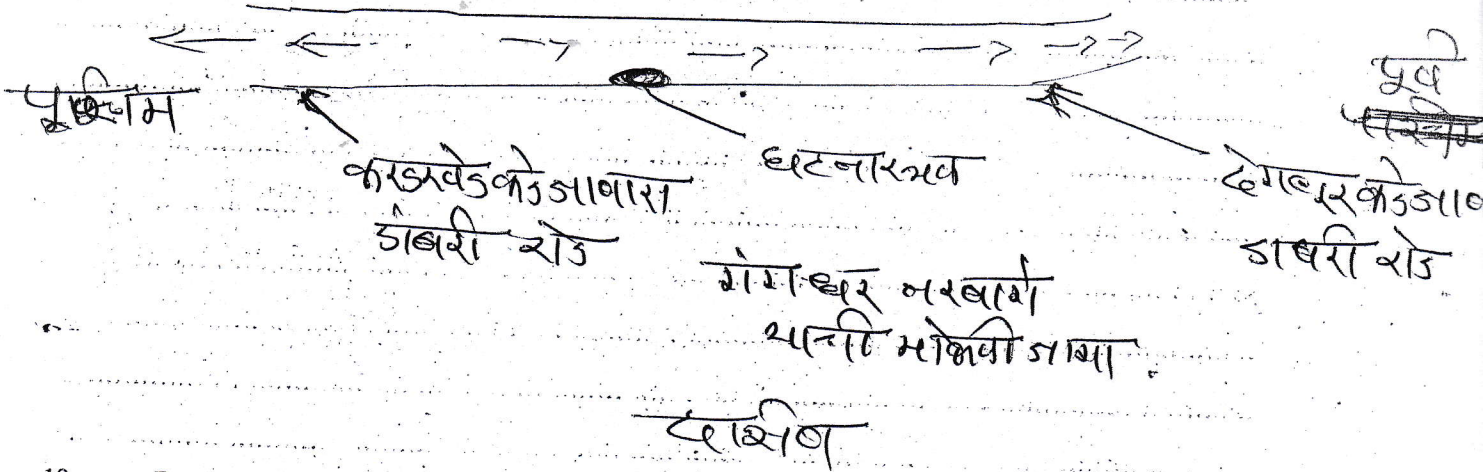 पूर्व
पश्चिम
करडखेडकडे जाणारा
डांबरी रोड
घटनास्थळ
देगलूरकडे जाण
डांबरी रोड
गंगाधर नरबागे
याची मोकळी जागा.
दक्षिण